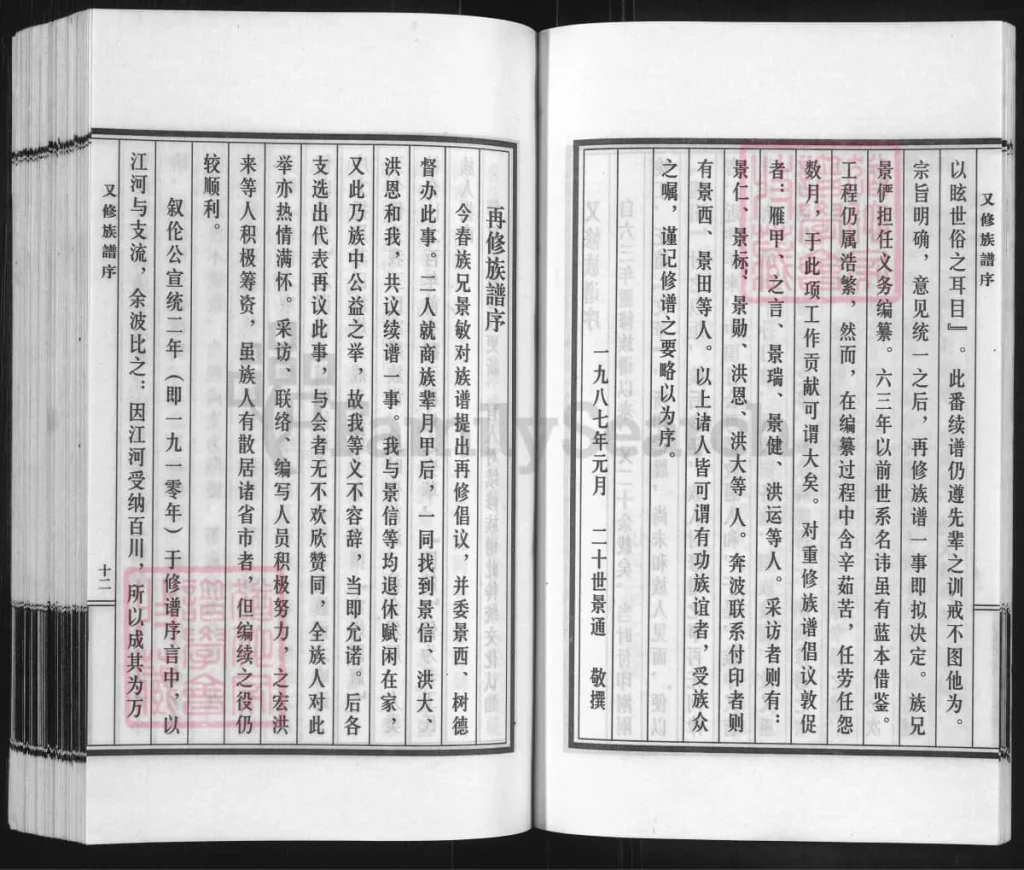 又修族譜序
以眩世俗之耳目』。此番续谱仍遵先辈之训戒不图他为。
宗旨明确，意见统一之后，再修族谱一事即拟决定。族兄
景俨担任义务编纂。六三年以前世系名讳虽有蓝本借鉴。
工程仍属浩繁，然而，在编纂过程中含辛茹苦，任劳任怨
数月，于此项工作贡献可谓大矣。对重修族谱倡议敦促
者：雁甲、之言、景瑞、景健、洪运等人。采访者则有：
景仁、景标、景勋、洪恩、洪大等人。奔波联系付印者则
有景西、景田等人。以上诸人皆可谓有功族谊者，受族众
之嘱，谨记修谱之要略以为序。
一九八七年元月 二十世景通 敬撰
再修族譜序
今春族兄景敏对族谱提出再修倡议，并委景西、树德
督办此事。三人就商族辈月甲后，一同找到景信、洪大、
洪恩和我，共议续谱一事。我与景信等均退休赋闲在家，
又此乃族中公益之举，故我等义不容辞，当即允诺。后各
支选出代表再议此事，与会者无不欢欣赞同，全族人对此
举亦热情满怀。采访、联络、编写人员积极努力，之宏洪
来等人积极筹资，虽族人有散居诸省市者，但编续之役仍
较顺利。
叙伦公宣统二年（即一九一零年）于修谱序言中，以
江河与支流，余波比之：因江河受纳百川，所以成其为万
又修族譜序
十二
FamilySearch